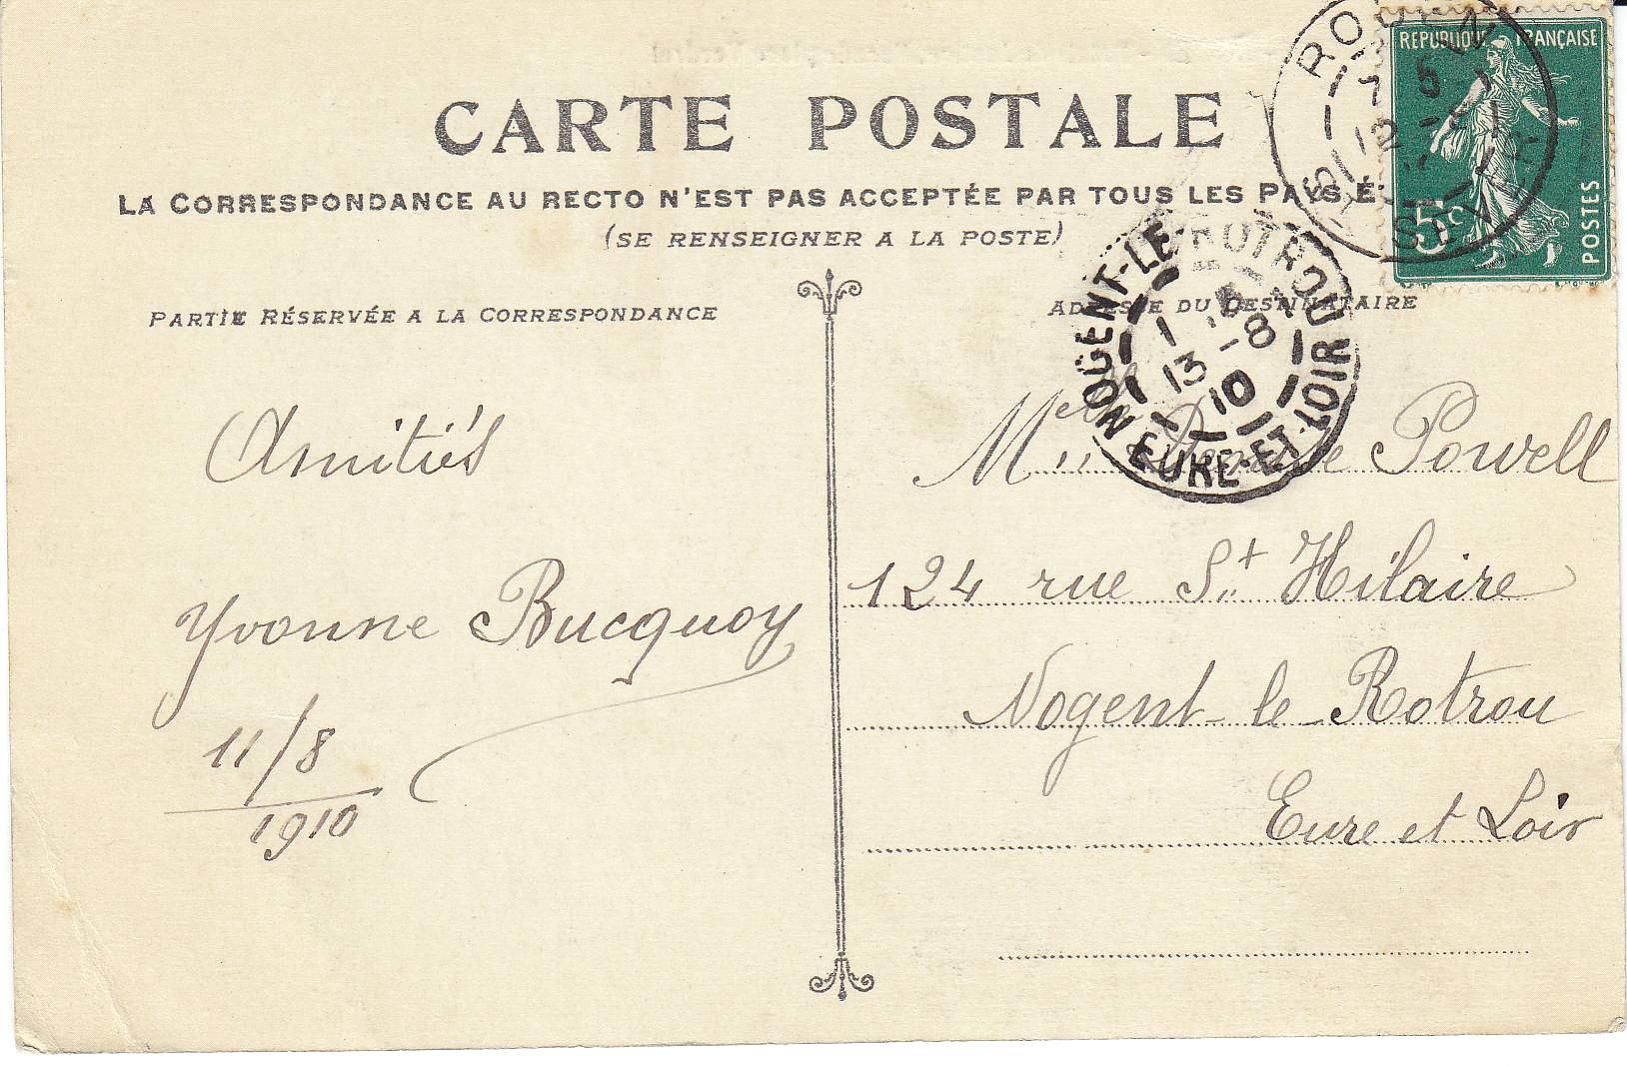 CARTE POSTALE
LA CORRESPONDANCE AU RECTO N'EST PAS ACCEPTÉE PAR TOUS LES PAYS
(SE RENSEIGNER A LA POSTE)
PARTIE RÉSERVÉE A LA CORRESPONDANCE
Amitiés
Yvonne Bucquoy
11/8
1910
REPUBLIQUE FRANÇAISE
5c
POSTES
ROUEN
NOGENT-LE-ROTROU
13 -8
10
EURE-ET-LOIR
ADRESSE DU DESTINATAIRE
Melle Powell
124 rue St Hilaire
Nogent-le-Rotrou
Eure et Loir